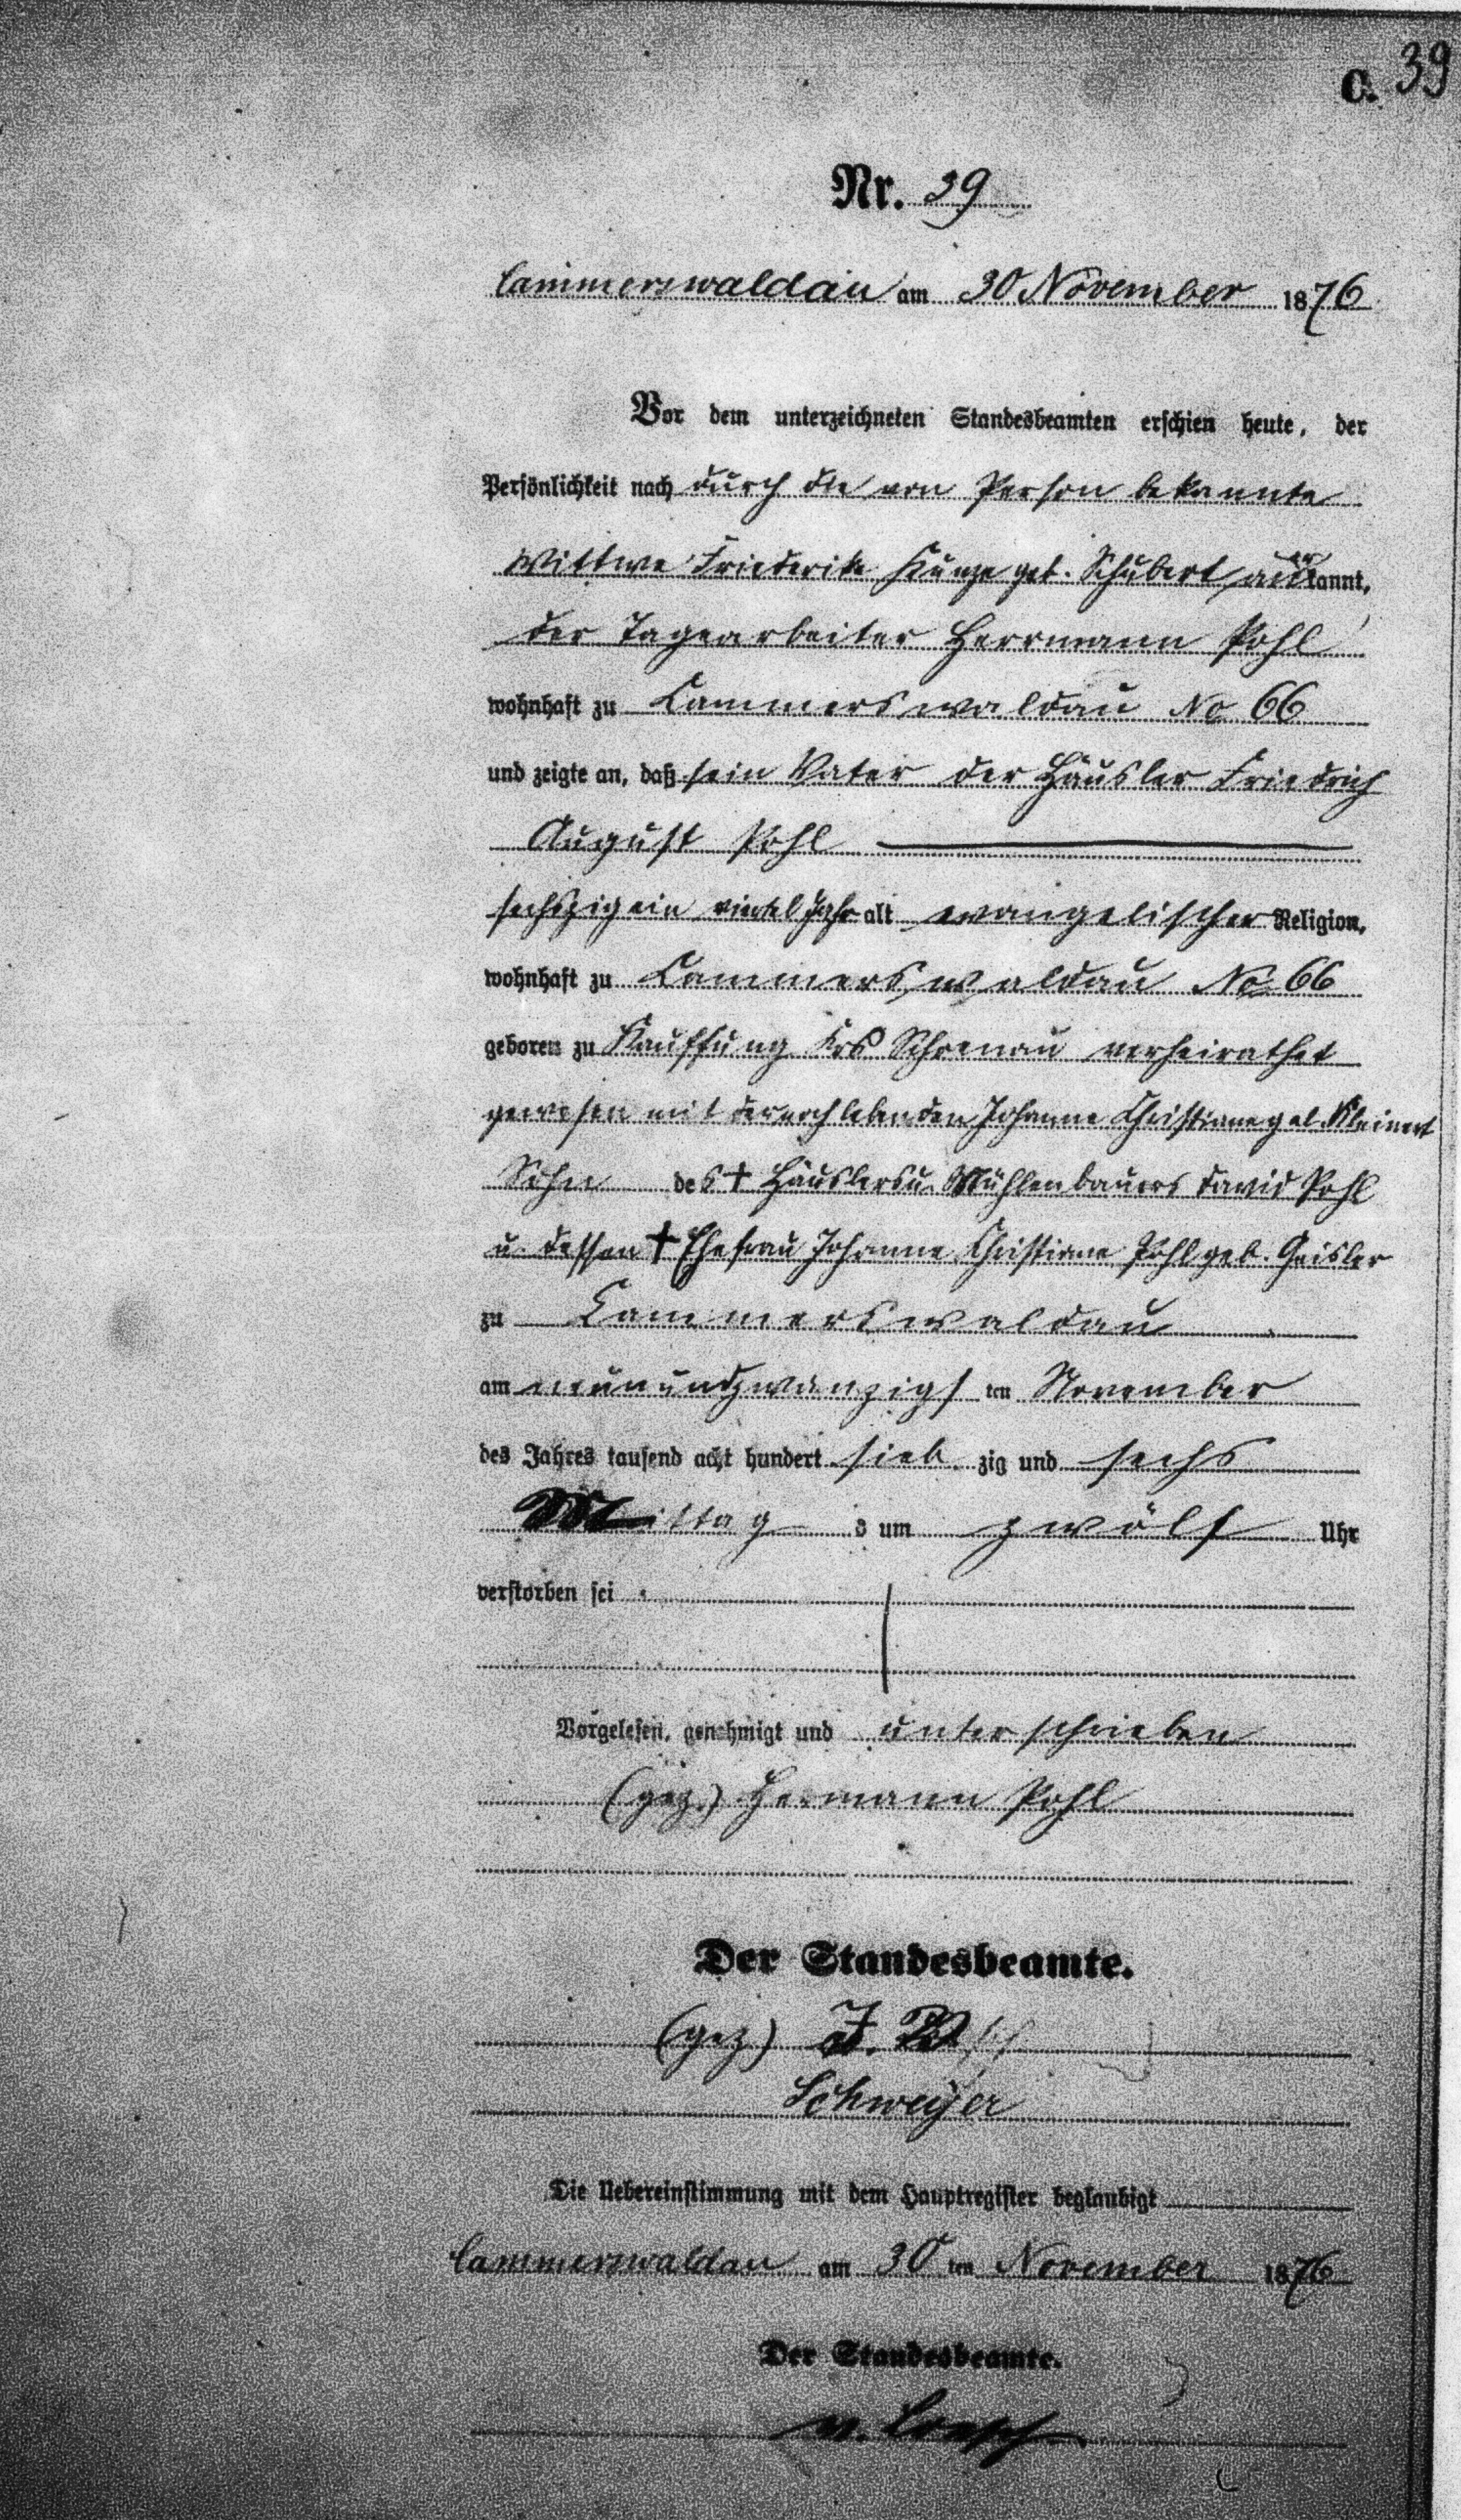 C. 39
Nr. 39
Cammerswaldau am 30 November 1876
Vor dem unterzeichneten Standesbeamten erschien heute, der
Persönlichkeit nach durch die von Person bekannte
Wittwe Friederike Kunze geb. Schubert, anerkannt,
der Tagearbeiter Herrmann Pohl
wohnhaft zu Cammerswaldau No 66
und zeigte an, daß sein Vater der Häusler Friedrich
August Pohl
sechszig ein viertel Jahr alt evangelischer Religion,
wohnhaft zu Cammerswaldau No 66
geboren zu Kauffung Krs Schoenau verheirathet
gewesen mit der noch lebenden Johanne Christiane geb. Kleinert
Sohn des † Häuslers u. Mühlenbauers David Pohl
u. dessen † Ehefrau Johanne Christiane Pohl geb. Geisler
zu Cammerswaldau
am neunundzwanzigsten November
des Jahres tausend acht hundert siebzig und sechs
Mittags um zwölf Uhr
verstorben sei
Vorgelesen, genehmigt und unterschrieben
(gez.) Hermann Pohl
Der Standesbeamte.
(gez)
Schweizer
Die Uebereinstimmung mit dem Hauptregister beglaubigt
Cammerswaldau am 30ten November 1876
Der Standesbeamte.
v. Loesch